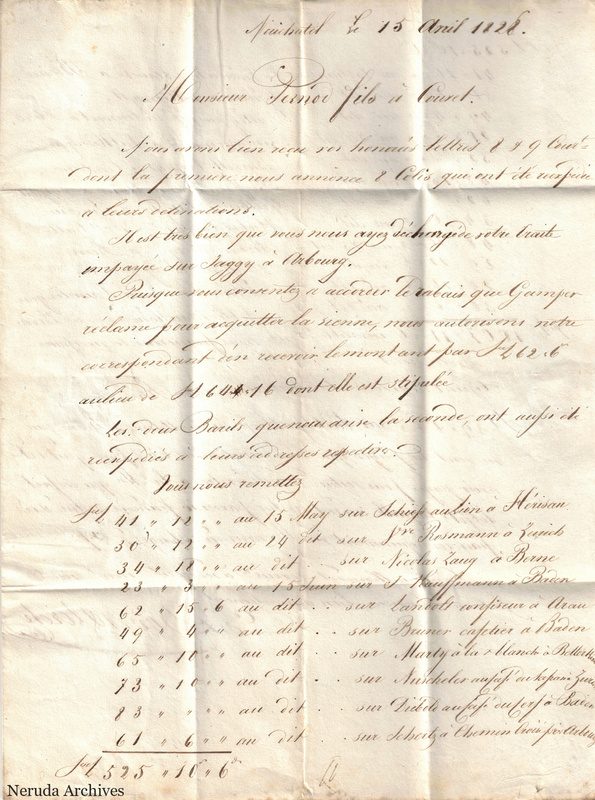 Neuchatel Le 15 Avril 1828.
Monsieur Pernod fils à Couvet.
Nous avons bien reçu vos honorés lettres 8 & 9 Court
dont la première nous annonce 8 Colis qui ont été réexpédié
à leurs destinations.
Il est très bien que vous nous ayez déchargé de votre traite
impayée sur Jaggy à Arbourg.
Puisque vous consentez à accorder le rabais que Gamper
réclame pour acquitter la sienne, nous autorisons notre
correspondant d'en recevoir le montant par 62 6
au lieu de 64 16 dont elle est stipulée
Les deux Barils que nous avise la seconde, ont aussi été
réexpédiés à leurs addresses
Vous nous remettez
41 " 12 " " au 15 May sur Schiess au Lion à Hérisau
30 " 12 " " au 24 dit sur Rosmann à Zurich
34 " 18 " " au dit . . sur Nicolas Zaug à Berne
23 " 3 " au 15 Juin sur Kauffmann à Baden
62 " 15 " 6 au dit . . sur confiseur à Arau
49 " 4 " " au dit . . sur Bruner cafetier à Baden
65 " 10 " " au dit . . sur Marty à la
73 " 10 " " au dit . . sur Nuscheler au café du
83 " " " au dit . . sur Diebold au café du Cerf à Baden
61 " 6 " " au dit . . sur à
525 " 10 " 6
Neruda Archives